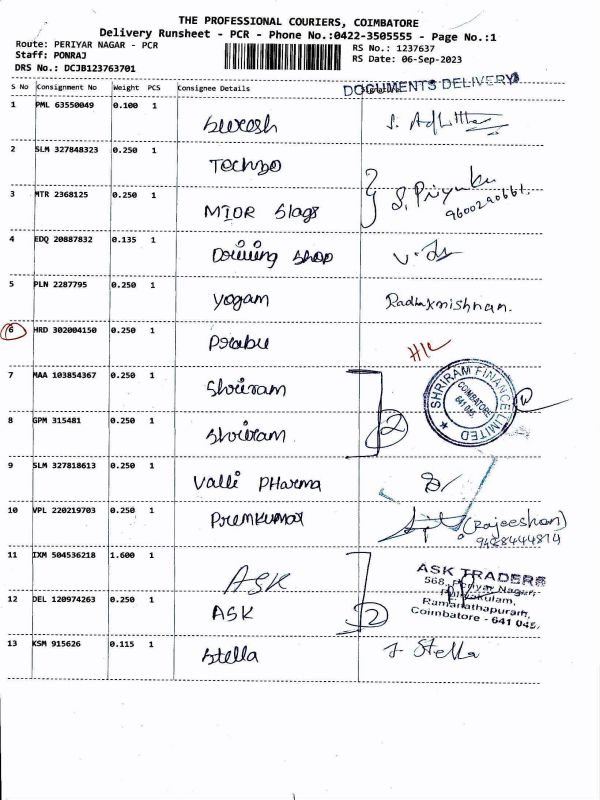 THE PROFESSIONAL COURIERS, COIMBATORE
Delivery Runsheet - PCR - Phone No.:0422-3505555 - Page No.:1
Route: PERIYAR NAGAR - PCR
Staff: PONRAJ
DRS No.: DCJB123763701
RS No.: 1237637
RS Date: 06-Sep-2023
S No Consignment No Weight PCS Consignee Details
DOCUMENTS DELIVERY
1 PML 63550049 0.100 1 Suresh
2 SLM 327848323 0.250 1
3 MTR 2368125 0.250 1 S. Priyanka
9600290661
4 EDQ 20887832 0.135 1 Driving Shop
5 PLN 2287795 0.250 1 Yogam Radhakrishnan.
6 HRD 302004150 0.250 1 Prabu
7 MAA 103854367 0.250 1 Shriram
8 GPM 315481 0.250 1 Shriram 2
SHRIRAM FINANCE LIMITED
COIMBATORE
641 045.
9 SLM 327818613 0.250 1 Valli PHarma
10 VPL 220219703 0.250 1 Premkumar (Rajeeshan)
11 IXM 504536218 1.600 1 ASK
12 DEL 120974263 0.250 1 ASK 2
ASK TRADERS
568, Periyar Nagar,
Pulivakulam,
Ramanathapuram,
Coimbatore - 641 045.
13 KSM 915626 0.115 1 Stella J Stella